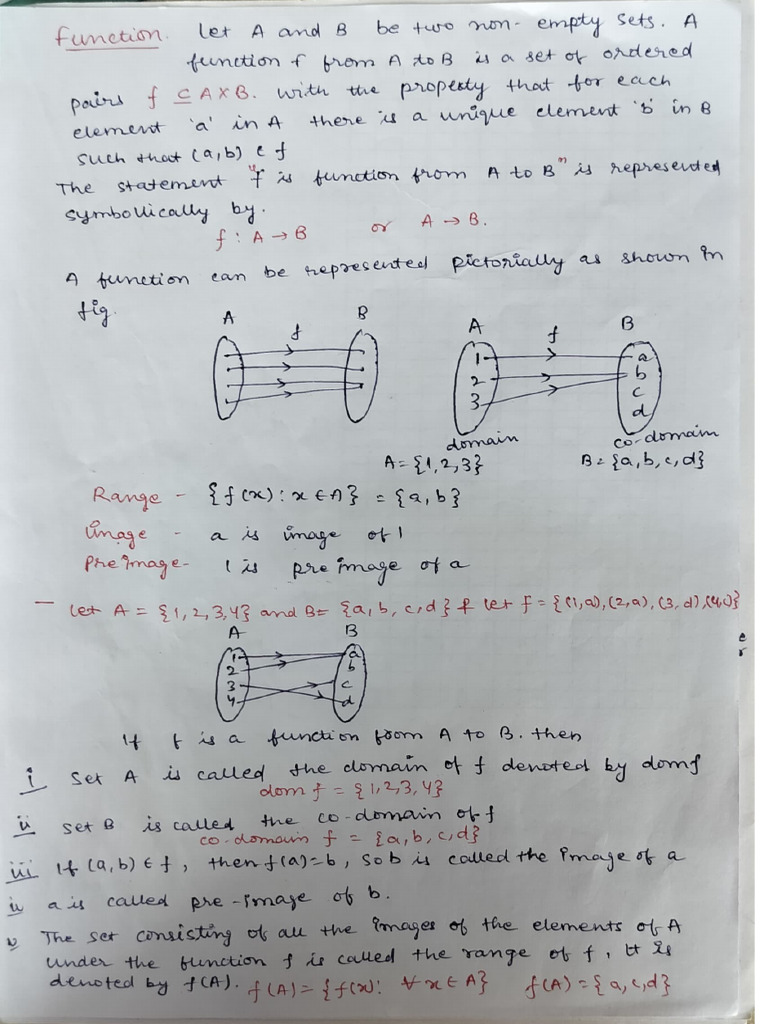 Function. Let A and B be two non-empty sets. A
function f from A to B is a set of ordered
pairs f ⊆ A×B. with the property that for each
element 'a' in A there is a unique element 'b' in B
such that (a,b) ∈ f
The statement "f is function from A to B" is represented
symbollically by.
f : A → B or A → B.
A function can be represented pictorially as shown in
fig.
A f B A f B
1 a
2 b
3 c
d
domain co-domain
A = {1,2,3} B = {a,b,c,d}
Range - {f(x) : x ∈ A} = {a,b}
image - a is image of 1
Pre image - 1 is pre image of a
— Let A = {1,2,3,4} and B = {a,b,c,d} & let f = {(1,a),(2,a),(3,d),(4,c)}
A B
1 a
2 b
3 c
4 d
If f is a function from A to B. then
i Set A is called the domain of f denoted by domf
dom f = {1,2,3,4}
ii Set B is called the co-domain of f
co-domain f = {a,b,c,d}
iii If (a,b) ∈ f, then f(a)=b, so b is called the image of a
iv a is called pre-image of b.
v The set consisting of all the images of the elements of A
under the function f is called the range of f, It is
denoted by f(A). f(A) = {f(x): ∀ x ∈ A} f(A) = {a,c,d}